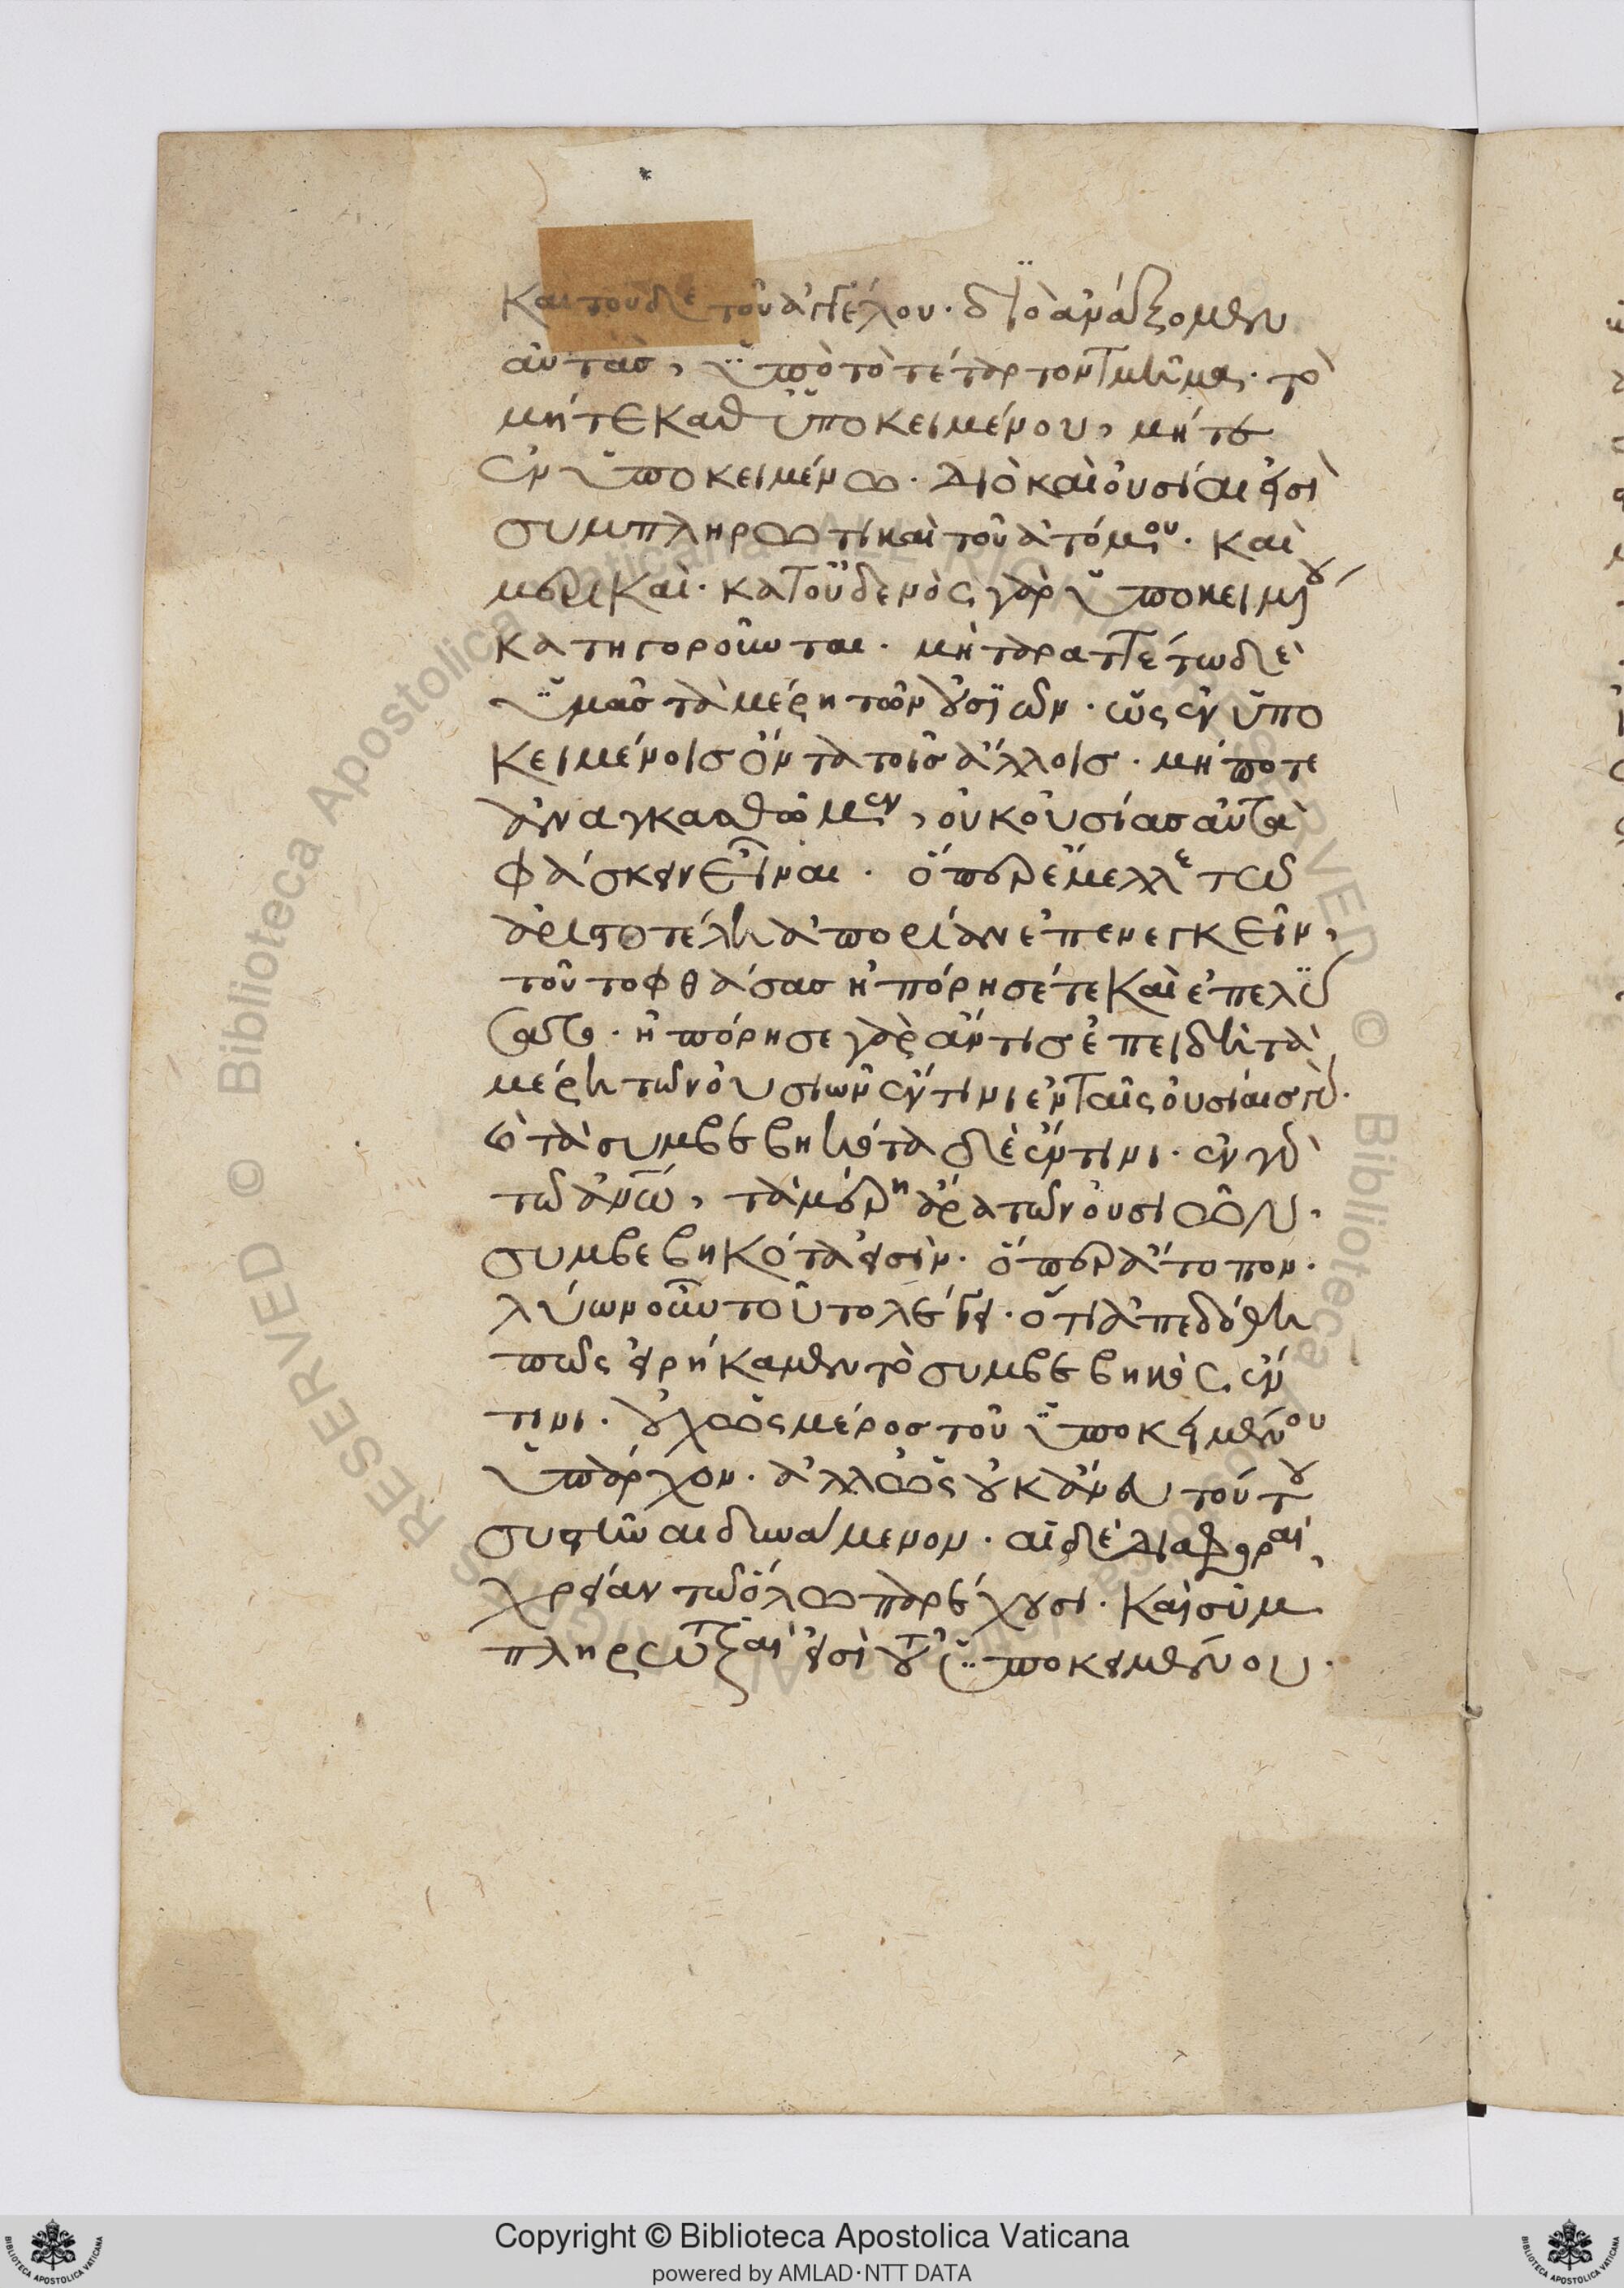 καὶ τοῦδε τοῦ ἀγγέλου· διὸ ἀνάξομεν
αὐτὰς, ὑπὸ τὸ τέταρτον τμῆμα· τὸ
μήτε καθ ὑποκειμένου, μήτε
ἐν ὑποκειμένω· διὸ καὶ οὐσίαι εἰσὶ
συμπληρωτικαὶ τοῦ ἀτόμου· καὶ
μερικαὶ· κατ οὐδενὸς γὰρ ὑποκειμένου
κατηγοροῦνται· μὴ ταραττέτω δὲ
ὑμᾶς τὰ μέρη τῶν οὐσιῶν· ὡς ἐν ὑπο
κειμένοις ὄντα τοῖς ἄλλοις· μήποτε
ἀναγκασθῶμεν, οὐκ οὐσίας αὐτὰ
φάσκειν εἶναι· ὅπερ ἔμελλε τῶ
ἀριστοτέλη ἀπορίαν ἐπενεγκεῖν,
τοῦτο φθάσας ἠπόρησέ τε καὶ ἐπελύ
σατο· ἠπόρησε γὰρ ἄν τις ἐπειδὴ τὰ
μέρη τῶν οὐσιῶν ἔν τινι ἐν ταῖς οὐσίαις
τὰ συμβεβηκότα δὲ ἔν τινι· ἐν γὰρ
τῶ ἀνω, τὰ μέρη ἄρα τῶν οὐσιῶν,
συμβεβηκότα εἰσὶν· ὅπερ ἄτοπον·
λύων οὖν τοῦτο λέγει· ὅτι ἀπεδόθη
πῶς εἰρήκαμεν τὸ συμβεβηκὸς ἔν
τινι· οὐχ ὡς μέρος τοῦ ὑποκειμένου
ὑπάρχον· ἀλλ ὡς οὐκ ἄνευ τούτου
συστῆναι δυνάμενον· αἱ δὲ διαφοραὶ,
χρείαν τῶ ὅλω παρέχουσι· καὶ συμ
πληρωτικαί εἰσι τοῦ ὑποκειμένου·
Copyright © Biblioteca Apostolica Vaticana
powered by AMLAD·NTT DATA